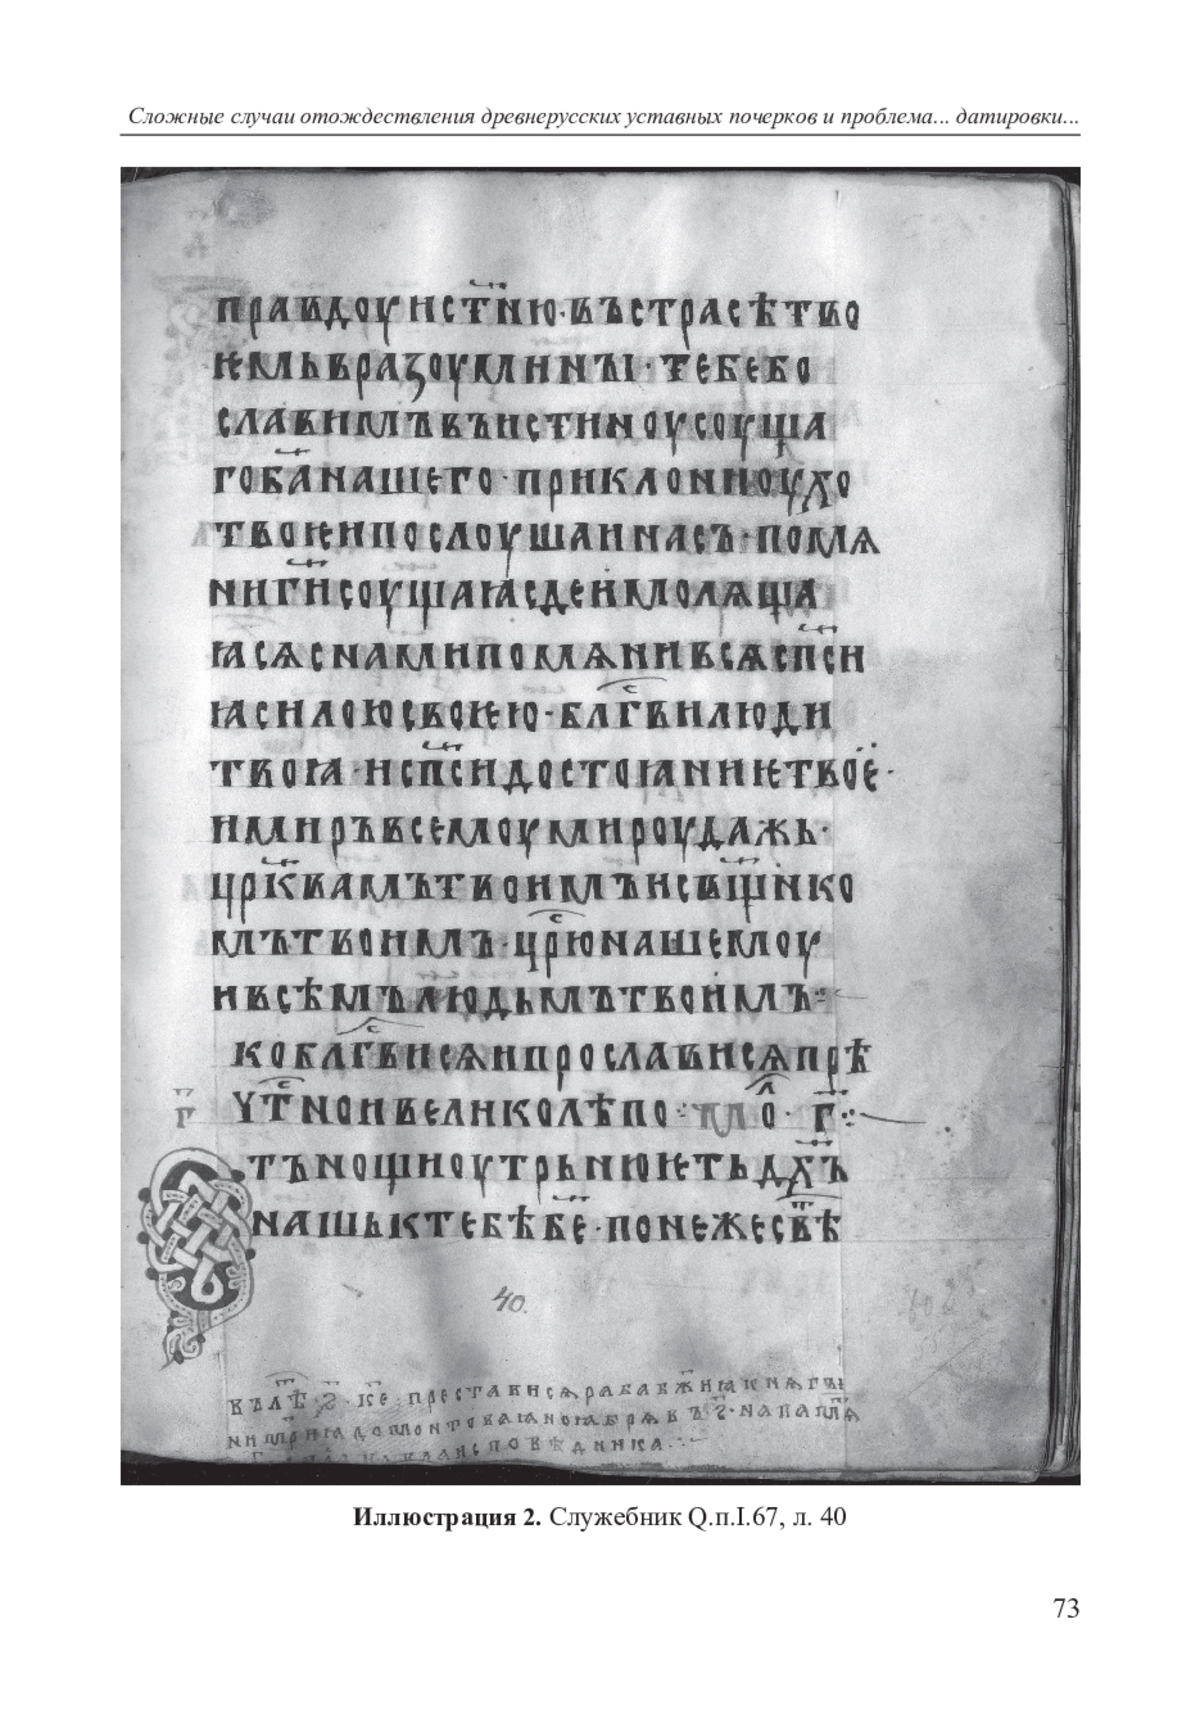 Сложные случаи отождествления древнерусских уставных почерков и проблема... датировки...
правдоуист҃ню·въстрасѣтво
ѥмльвразоумлины·тебебо
славимъвъистиноусоуща
гоб҃анашего·приклониоухо
твоѥипослоушаинасъ·помѧ
ниг҃исоущаꙗсдеимолѧща
ꙗсѧснамипомѧнивсѧсп҃си
ꙗсилоюсвоѥю·блⷭ҇гвилюди
твоꙗ·исп҃сидостоꙗниѥтвое·
имиръвсемоумироудажь·
цр҃квамътвоимъисвщ҃нико
мътвоимъ·црⷭ҇юнашемоу
ивсѣмълюдьмътвоимъ
коблⷭ҇гвисѧипрослависѧпрѣ
чтⷭ҇ноивеликолѣпо м҃лоⷧ҇· г҃
г҃
тънощиоутрьнюѥтьдх҃ъ
нашьктебѣб҃е·понежесвⷮѣ
40.
вълѣⷮ·ѕ҃·к҃е·престависѧрабабж҃иꙗкнѧгы
Иллюстрация 2. Служебник Q.п.I.67, л. 40
73